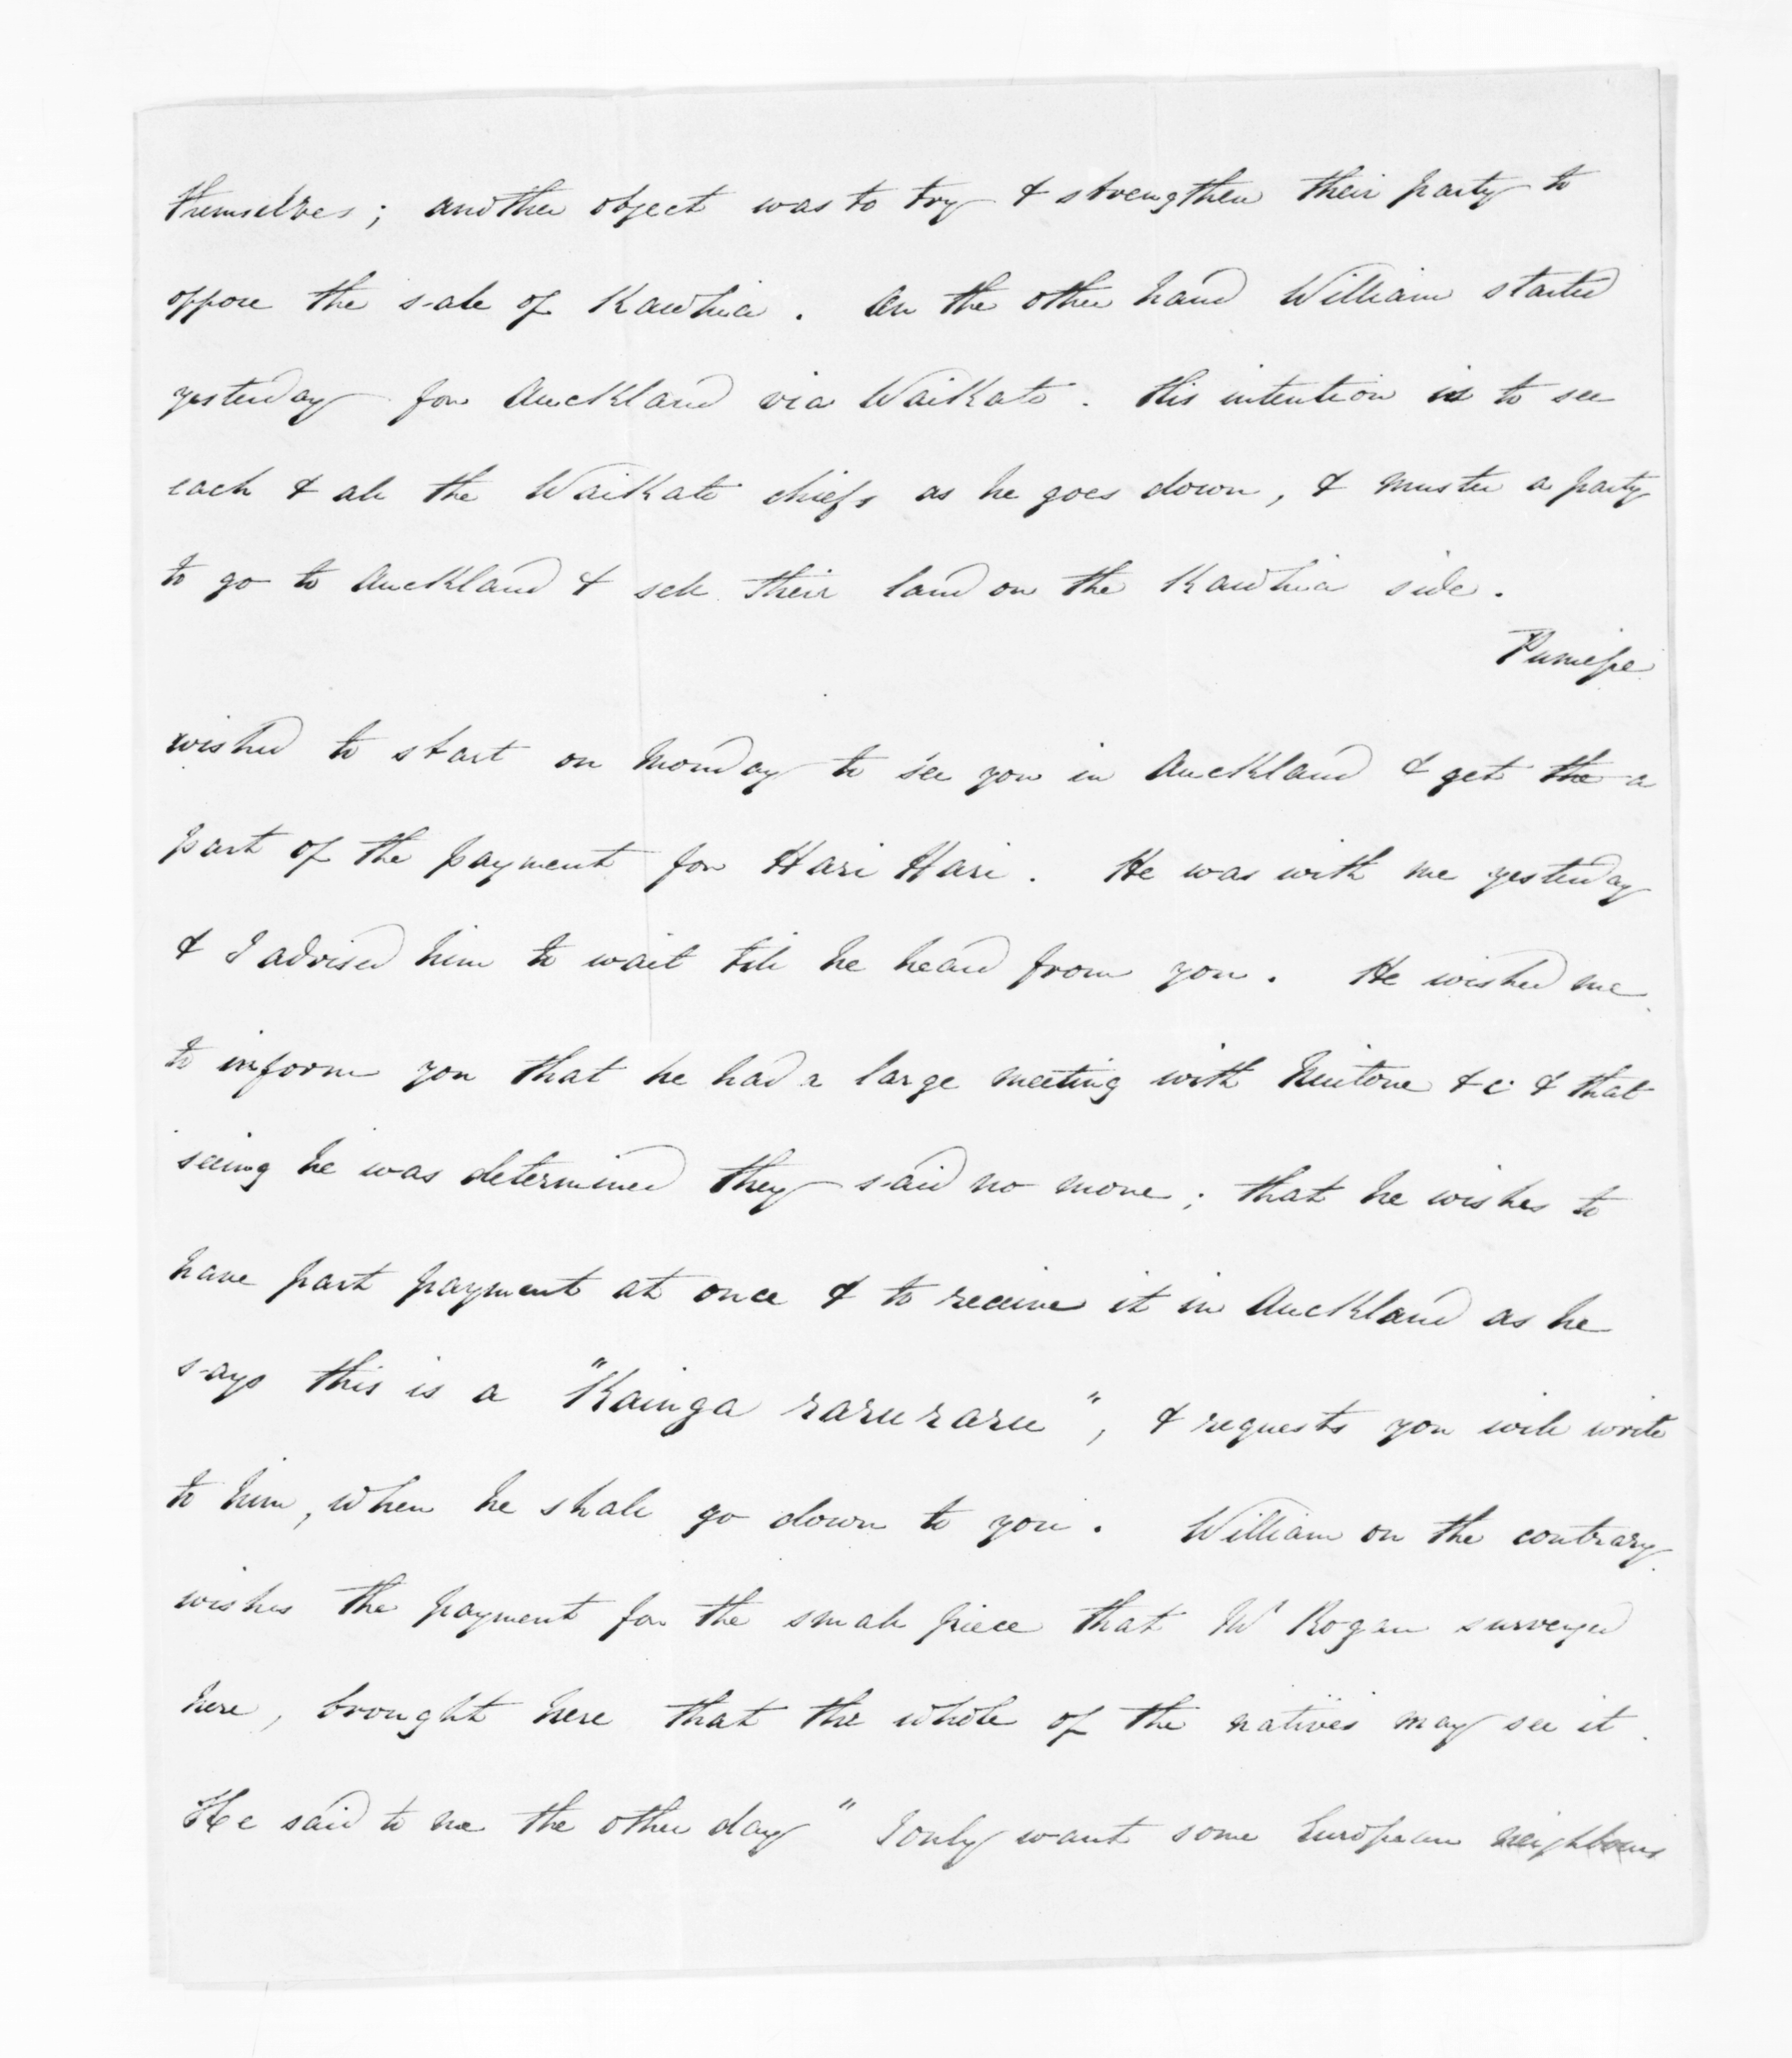 themselves; another object was to try & strengthen their party to
oppose the sale of Kawhia. On the other hand William started
yesterday for Auckland via Waikato. His intention is to see
each & all the Waikato chiefs as he goes down, & muster a party
to go to Auckland & sell their land on the Kawhia side.
Pumipe
wished to start on Monday to see you in Auckland & get the a
part of the payment for Hari Hari. He was with me yesterday
& I advised him to wait till he heard from you. He wished me
to inform you that he had a large meeting with Niutone &c & that
seeing he was determined they said no more; that he wishes to
have part payment at once & to receive it in Auckland as he
says this is a "Kainga raruraru", & requests you will write
to him, when he shall go down to you. William on the contrary
wishes the payment for the small piece that Mr Rogan surveyed
here, brought here that the whole of the natives may see it.
He said to me the other day "I only want some European neighbours